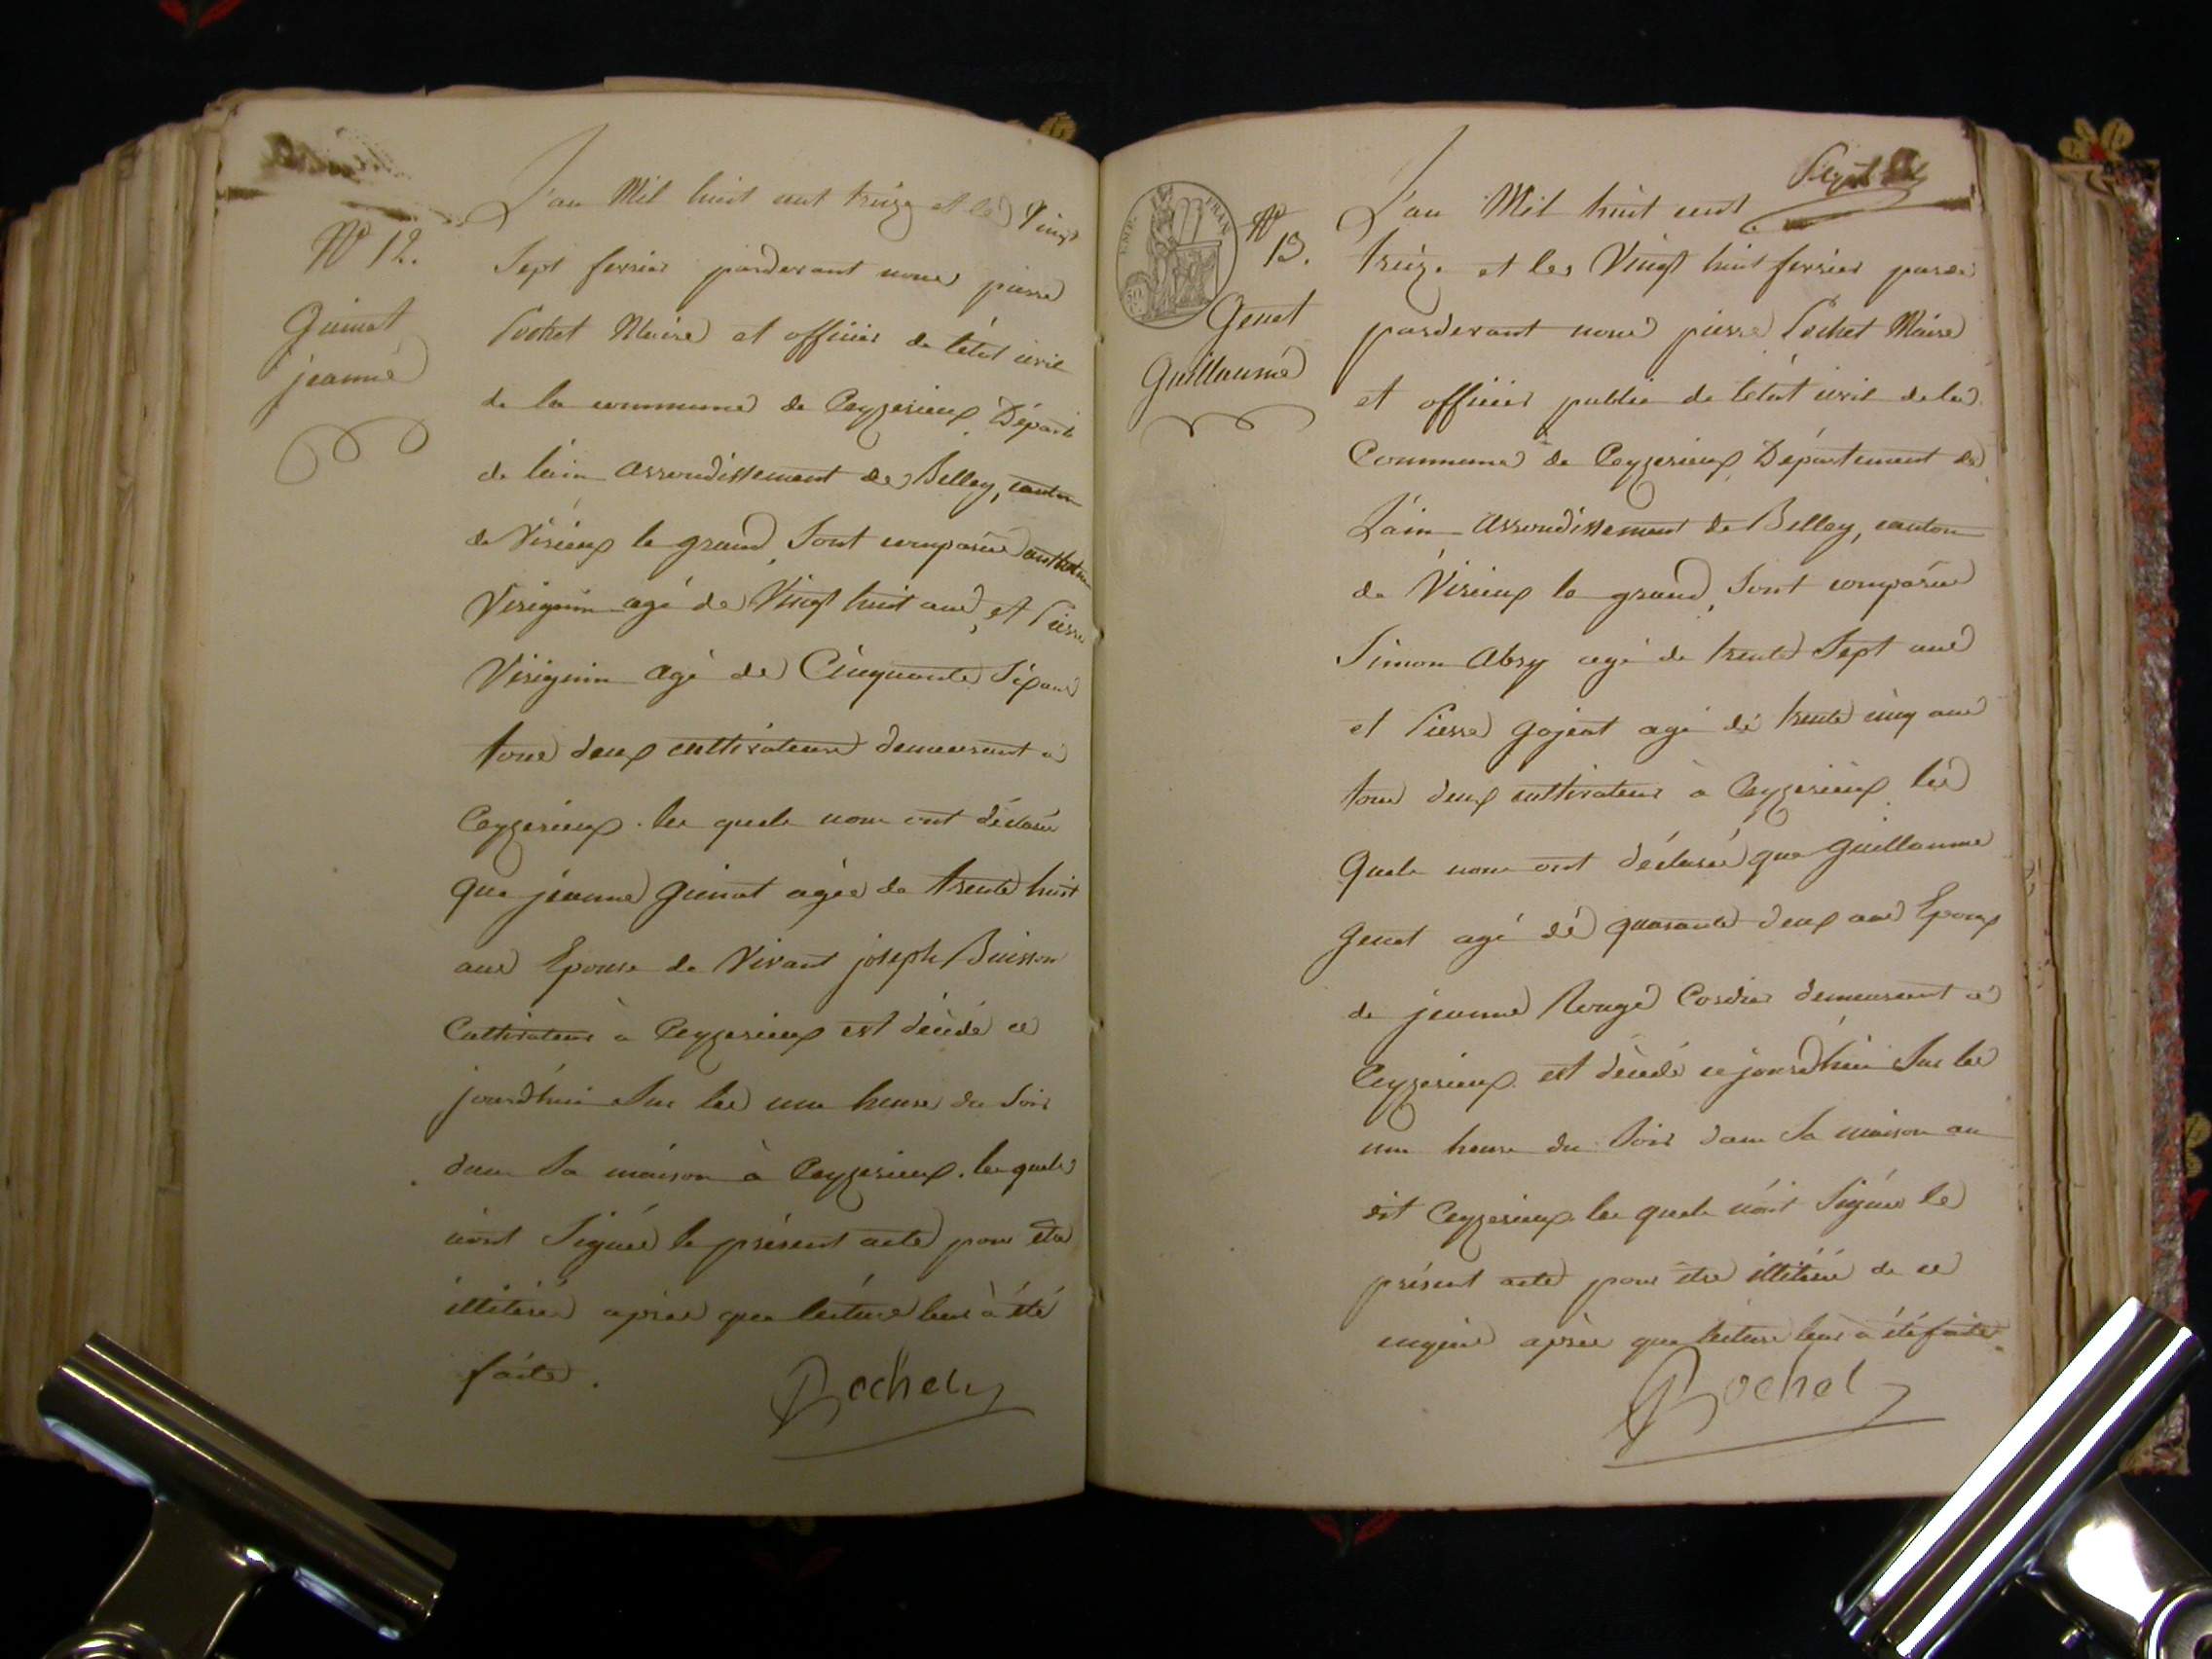 N° 12.
Guinet
jeanne
L'an Mil huit cent treize et les Vingt
Sept fevrier pardevant nous pierre
Pochet Maire et officier de l'état civil
de la commune de Ceyzerieux Départ
de lain arrondissement de Belley, canton
de Virieux le grand, Sont comparus
Virignin agé de Vingt huit ans, et Pierre
Virignin agé de Cinquante Six ans
tous deux cultivateurs demeurant à
Ceyzerieux. les quels nous ont déclaré
que jeanne guinet agée de trente huit
ans Epouse de Vivant joseph Buisson
Cultivateur à Ceyzerieux est décédé ce
jourd'hui Sur les une heure du Soir
dans Sa maison à Ceyzerieux. les quels
n'ont Signés le présent acte pour être
illitérés après que lecture leur à été
faite.
Pochet
EMP. FRAN.
50 C.
N°
13.
Genet
Guillaume
L'an Mil huit cent
treize et les Vingt huit fevrier parde
pardevant nous pierre Pochet Maire
et officier public de l'état civil de la
Commune de Ceyzerieux Département de
L'ain arrondissement de Belley, canton
de Virieux le grand, Sont comparus
Simon Abry agé de trente Sept ans
et Pierre gojeat agé de trente cinq ans
tous deux cultivateurs à Ceyzerieux les
quels nous ont déclarés que guillaume
genet agé de quarante deux ans Epoux
de jeanne Rouge Cordier demeurant à
Ceyzerieux est décédé ce jourd'hui Sur les
une heure du Soir dans Sa maison au
dit Ceyzerieux les quels n'ont Signés le
présent acte pour être illitérés de ce
enquis après que lecture leur à été faite.
Pochet